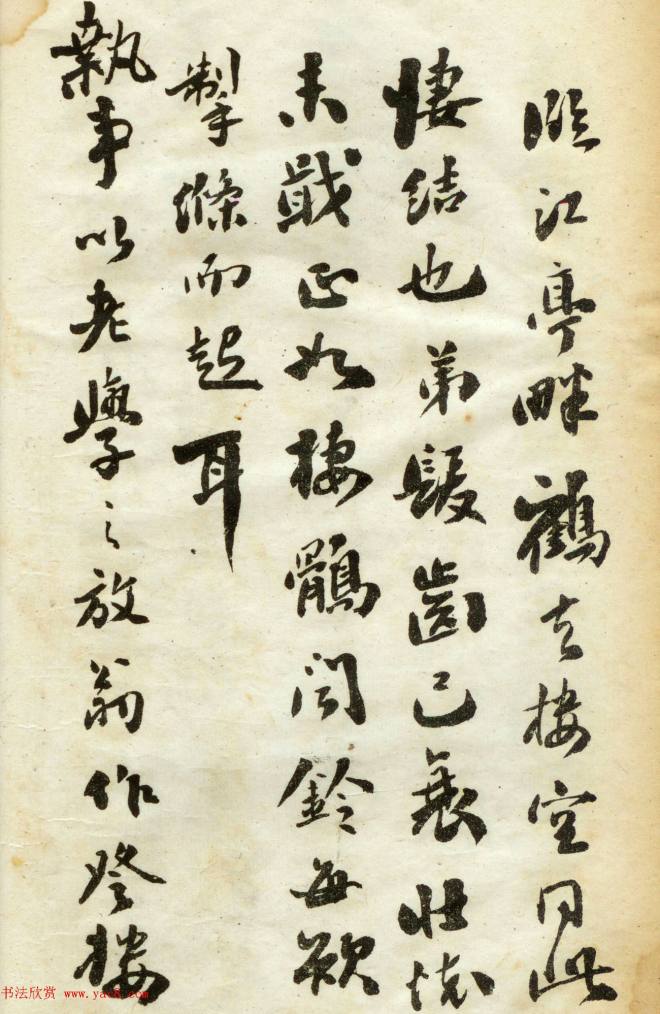 臨江亭畔鶴去樓空同此
悽結也弟髮齒已衰壯懷
未戢正如棲鶻聞鈴每欲
掣絛而起耳
執事以老學之放翁作登樓
书法欣赏 www.yac8.com